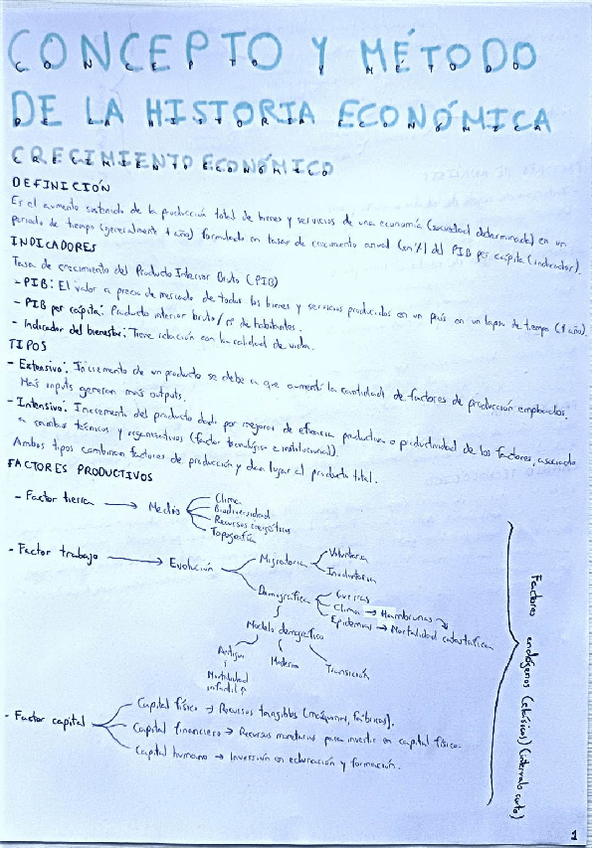 CONCEPTO Y MÉTODO
DE LA HISTORIA ECONÓMICA
CRECIMIENTO ECONÓMICO
DEFINICIÓN
Es el aumento sostenido de la producción total de bienes y servicios de una economía (sociedad determinada) en un
periodo de tiempo (generalmente 1 año) formulado en tasas de crecimiento anual (en %) del PIB per cápita (indicador).
INDICADORES
Tasa de crecimiento del Producto Interior Bruto (PIB)
- PIB: El valor a precio de mercado de todos los bienes y servicios producidos en un país en un lapso de tiempo (1 año).
- PIB per cápita: Producto interior bruto / nº de habitantes.
- Indicador del bienestar: Tiene relación con la calidad de vida.
TIPOS
- Extensivo: Incremento de un producto se debe a que aumentó la cantidad de factores de producción empleados.
Más inputs generan más outputs.
- Intensivo: Incremento del producto dado por mejoras de eficiencia productiva o productividad de los factores, asociado
a cambios técnicos y organizativos (factor tecnológico e institucional).
Ambos tipos combinan factores de producción y dan lugar al producto total.
FACTORES PRODUCTIVOS
- Factor tierra → Medio
Clima
Biodiversidad
Recursos energéticos
Topografía
- Factor trabajo → Evolución
Migratoria
Voluntaria
Involuntaria
Demográfica
Guerras
Clima → Hambrunas
Epidemias → Mortalidad catastrófica
Modelo demográfico
Antiguo
Mortalidad
infantil ↑
Moderno
Transición
- Factor capital
Capital físico → Recursos tangibles (máquinas, fábricas).
Capital financiero → Recursos monetarios para invertir en capital físico.
Capital humano → Inversión en educación y formación.
Factores endógenos (clásicos) (intervalo corto)
1